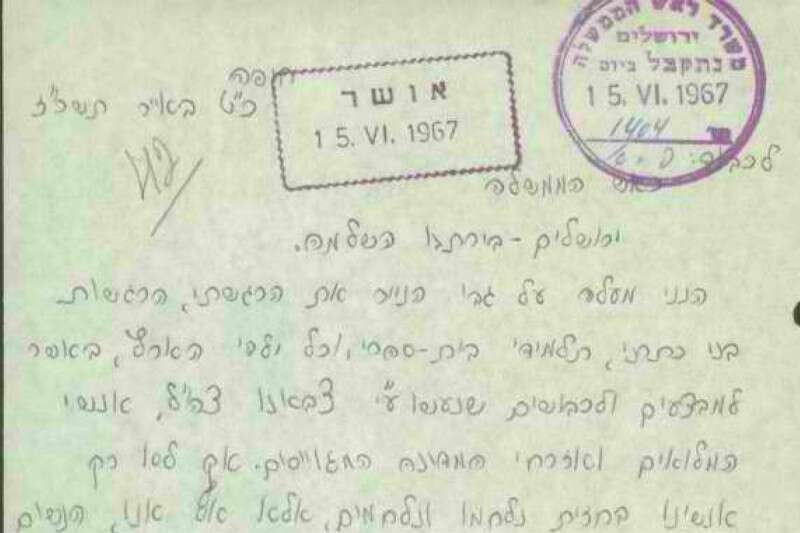 משרד ראש הממשלה
ירושלים
נתקבל ביום
15. VI. 1967
1404
אושר
15. VI. 1967
חיפה
כ"ט באייר תשכ"ז
לכבוד:
ראש הממשלה
ירושלים - בירתנו השלמה.
הנני מעלה על גבי הנייר את הרגשתי, הרגשות
בני כתתי, תלמידי בית-ספרי, וכל ילדי הארץ, באשר
למבצעים ולכבושים שנעשו ע"י צבאנו צה"ל, אנשי
המלואים ואזרחי המדינה המגוייסים. אף לא רק
אנשינו בחזית נלחמו ונלחמים, אלא אף אנו, הנשים